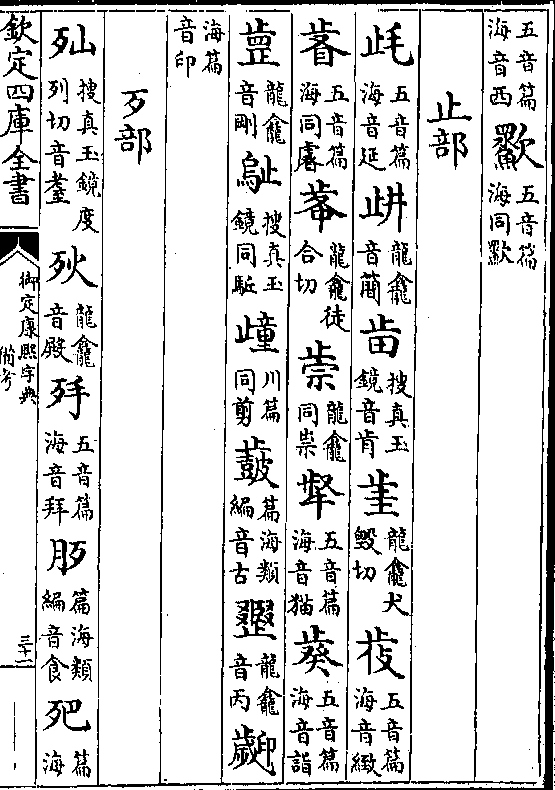 五音篇海音西 五音篇海同歠
止部
五音篇海音延 龍龕音簡 搜真玉鏡音肯 龍龕犬毀切 五音篇海音緻
五音篇海同 龍龕徒合切 龍龕同祟 五音篇海音猫 五音篇海音詣
龍龕音剛 搜真玉鏡同駈 川篇同剪 篇海類編音古 龍龕音丙
海篇音印
歹部
搜真玉鏡度列切音耋 龍龕音殿 五音篇海音拜 篇海類編音食 篇海
欽定四庫全書
御定康熙字典
備考
三十一